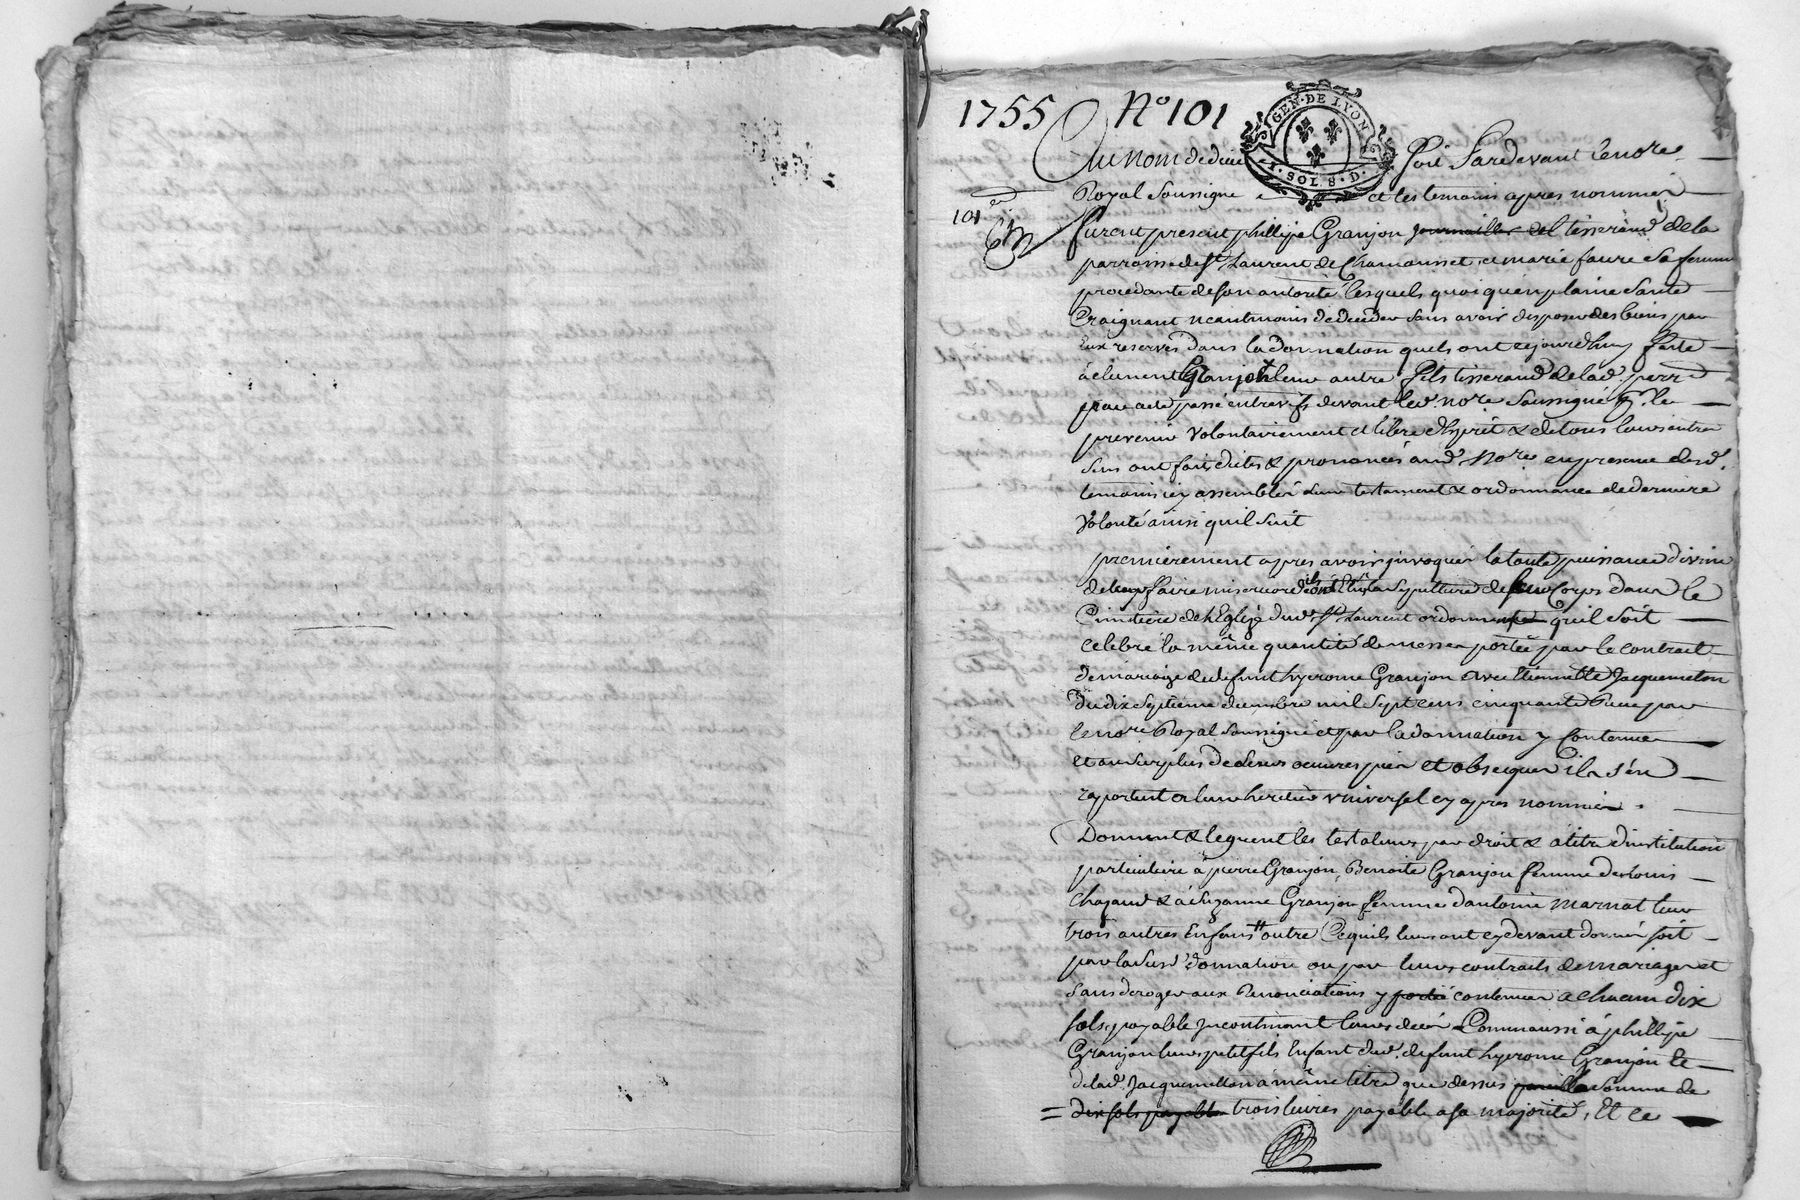 1755 N° 101
GEN. DE LYON
I. SOL 8. D.
Au nom de dieu soit Pardevant le no.re
Royal soussigné et les temoins apres nommés
101
furent present phillipe Granjon journaillier del tisserand de la
parroisse de St Laurent de Chamousset et marie faure sa femme
procedante de son autorité lesquels quoi qu'en plaine santé
Craignant neantmoins de deceder sans avoir disposer des biens par
eux reservés dans la donnation quels ont cejourdhuy faite
à clement Granjon leur autre fils tisserand de lad. parr.
par acte passé entre vifs devant led. no.re soussigné p.r le
prevenir volontairement et libre d'esprit & de tous leurs autres
sens ont fait, dictés & prononcés aud. No.re en presence desd.
temoins icy assemblés leur testament & ordonnance de derniere
volonté ainsi quil suit
premierement apres avoir invoquer la toute puissance divine
de leur faire misericorde ils ont Elus la sepulture de leur Corps dans le
Cimetiere de l'Eglize dud. St Laurent ordonnent quil soit
celebré la même quantité de messes portée par le contrait
de mariage de defunt hyerome Granjon avec Etiennette Jacquemeton
du dix Septieme decembre mil sept cens cinquante Receu par
le no.re Royal soussigné et par la donnation y Contenue
et au surplus de leurs oeuvres pies et obseques ils s'en
raportent à leur heritier universel cy apres nommés.
Donnent & leguent les testateurs par droit & à titre d'institution
particuliere à pierre Granjon, Benoite Granjon femme de Louis
Chazaud & à Suzanne Granjon femme d'antoine marnat leur
trois autres Enfans outre Ce quils leurs ont cydevant donnés soit
par la susd. donnation ou par leurs contraits de mariages et
sans deroger aux Renonciations y portée contenues à chacun dix
sols, payable Incontinant leurs decés Comm'aussi à phillipe
Granjon leurs petit fils Enfant dud. defunt hyerome Granjon &
de lad. Jacquemetton à même titre que dessus pareille somme de
= dix sols payable trois livres payable a sa majorité, Et ce